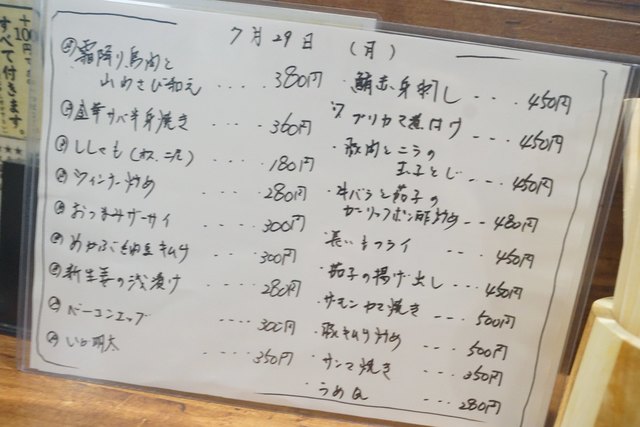 7月29日 (月)
霜降り馬肉と
山わさび和え .... 380円
金華サバ半身焼き .... 360円
ししゃも(オス、二尾) .... 180円
ウインナー炒め .... 280円
おつまみザーサイ .... 300円
めかぶ納豆キムチ .... 300円
新生姜の浅漬け .... 280円
ベーコンエッグ .... 300円
いか明太 .... 350円
鮪赤身刺し ... 450円
ブリカマ煮付け ... 450円
豚肉とニラの
玉子とじ ... 450円
牛バラと茄子の
ガーリックポン酢炒め -- 480円
長いもフライ -- 450円
茄子の揚げ出し ... 450円
サーモンカマ焼き --- 500円
豚キムチ炒め --- 500円
サンマ焼き ... 350円
うめQ --- 280円
+
100円で
すべて付きます。